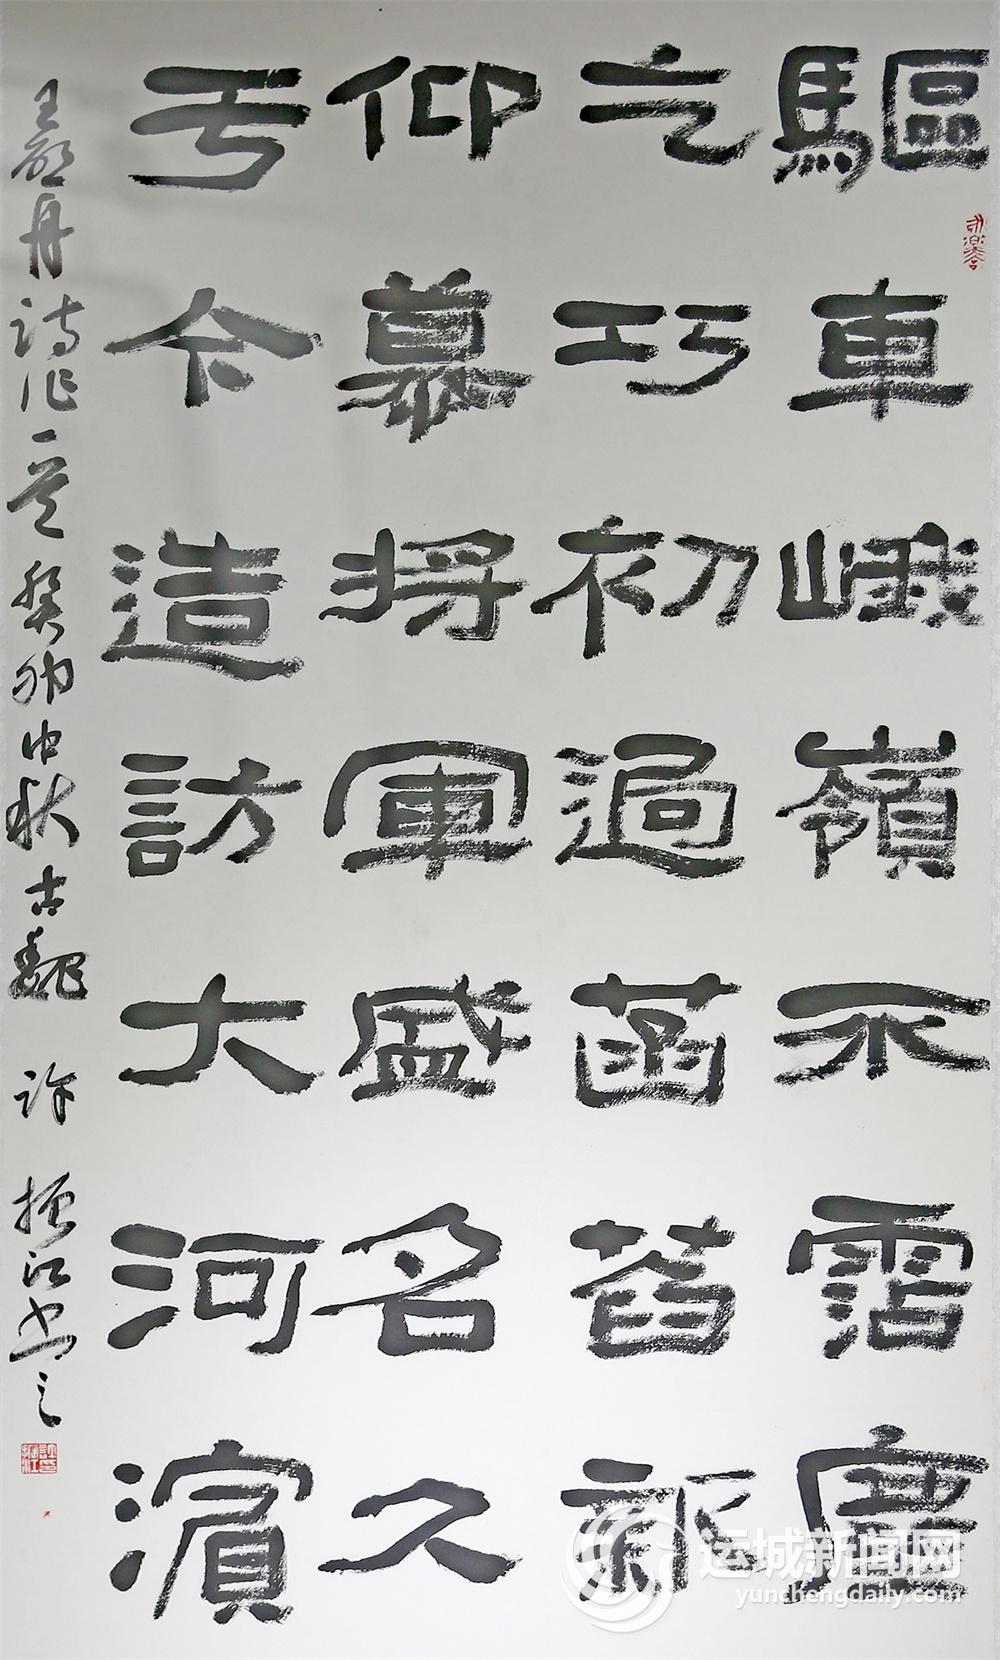 驅車峨嶺不霑塵
乞巧初過菡萏新
仰慕將軍盛名久
于今造訪大河濱
王丹詩作一首癸卯中秋古魏許振江書之
运城新闻网
yunchengdaily.com